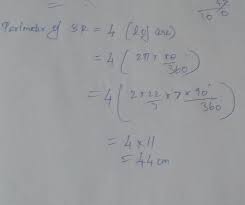 Perimeter of SR = 4 (lg arc)
= 4 ( 2π × 90/360 )
= 4 ( 2 × 22/7 × 7 × 90°/360 )
= 4 × 11
= 44 cm